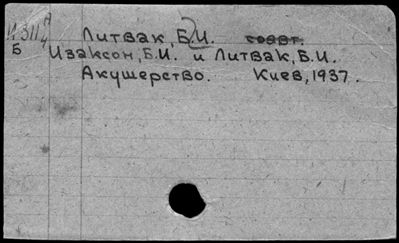 Литвак, Б.И. соавт.
Б Изаксон, Б.И. и Литвак, Б.И.
Акушерство. Киев, 1937.